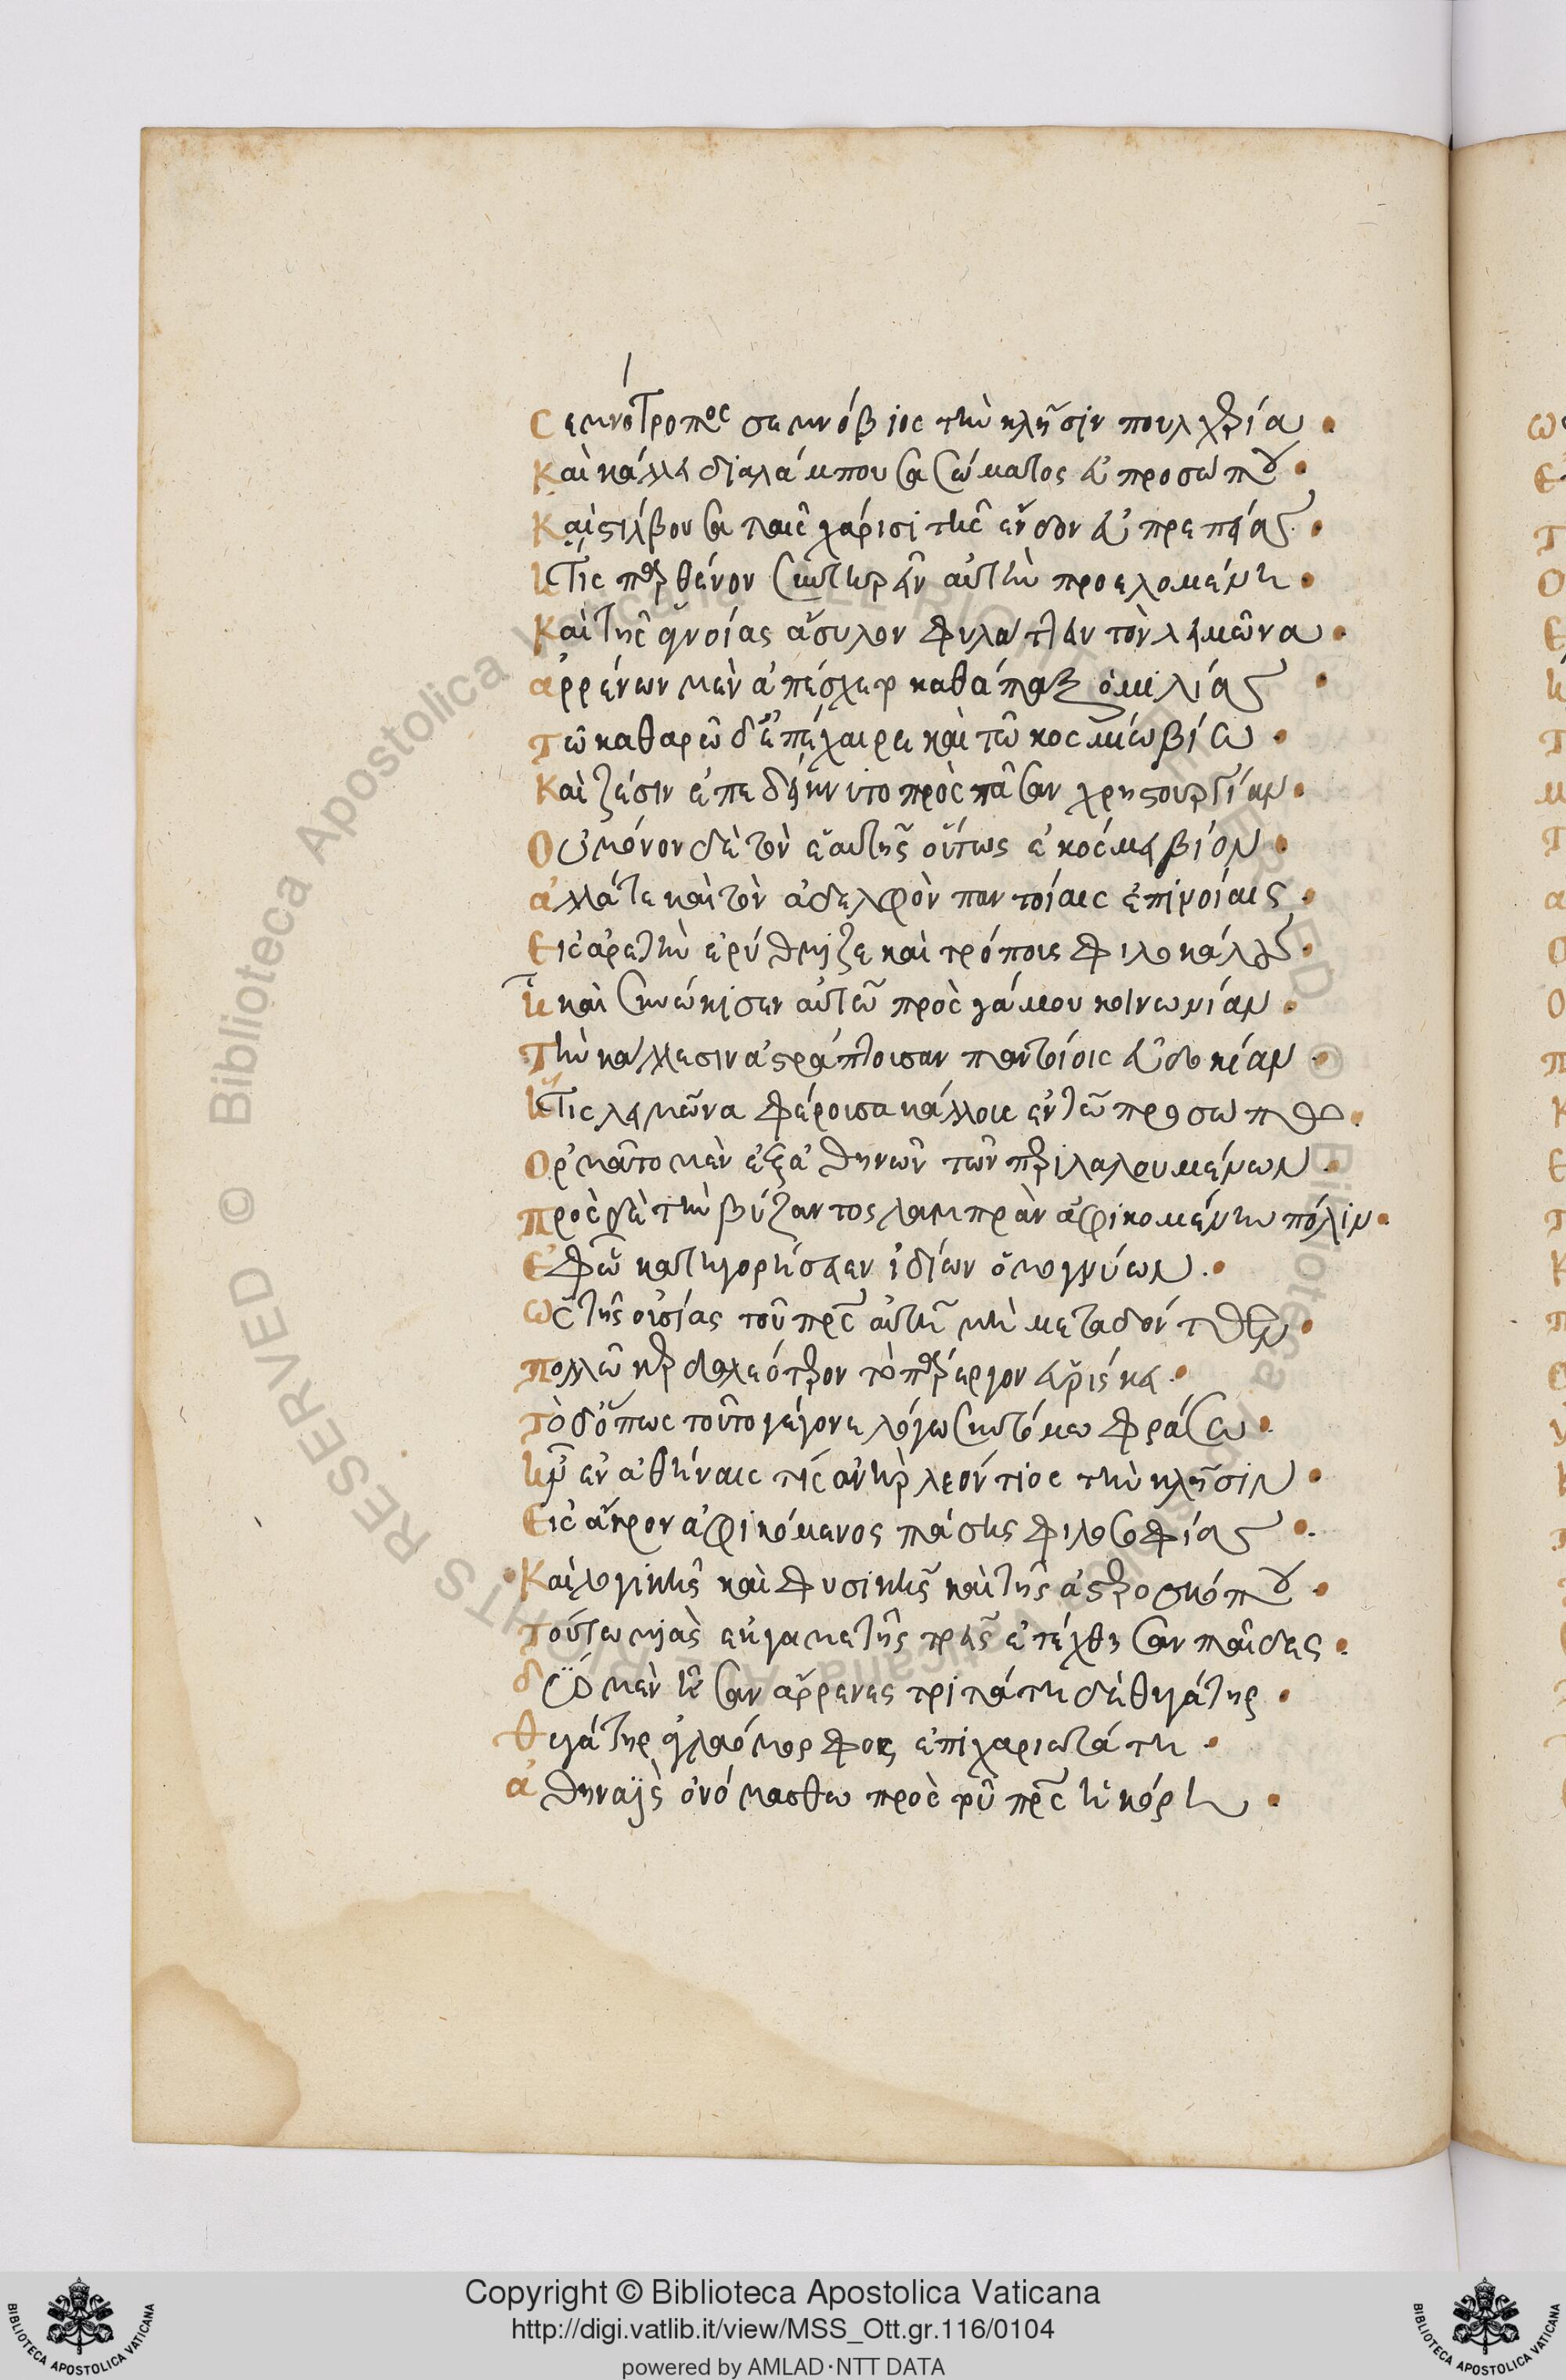 Σεμνότροπος σεμνόβιος τὴν κλῆσιν πουλχερία·
Καὶ κάλλει διαλάμπουσα σώματος εὐπροσώπου·
Καὶ στίλβουσα ταῖς χάρισι τῆς ἔνδον εὐπρεπείας·
Ἥτις παρθένον συντηρεῖν αὐτὴν προελομένη·
Καὶ τῆς ἁγνείας ἄσυλον φυλάττειν τὸν λειμῶνα·
ἀρρένων μὲν ἀπέσχετο καθάπαξ ὁμιλίας·
Τῶ καθαρῶ δ' ἐπέχαιρε καὶ τῶ κοσμίω βίω·
Καὶ ζέσιν ἐπεδείκνυτο πρὸς πᾶσαν χρηστουργίαν·
Οὐ μόνον δὲ τὸν ἑαυτῆς οὕτως ἐκόσμει βίον·
ἀλλά τε καὶ τὸν ἀδελφὸν παντοίαις ἐπινοίαις·
Εἰς ἀρετὴν ἐρύθμιζε καὶ τρόπους φιλοκάλους·
Ἣ καὶ συνώκισεν αὐτῶ πρὸς γάμου κοινωνίαν·
Τὴν κάλλεσιν ἀστράπτουσαν παντοίοις εὐδοκίαν·
Ἥτις λειμῶνα φέρουσα κάλλους ἐν τῶ προσώπω·
Ὁρμᾶτο μὲν ἐξ ἀθηνῶν τῶν περιλαλουμένων·
Πρὸς δὲ τὴν βύζαντος λαμπρὰν ἀφικομένη πόλιν·
Ἐφῶ κατηγορήσειεν ἰδίων ὁμογνίων·
ὡς τῆς οὐσίας τοῦ πρς αὐτῆ μὴ μεταδόντων·
Πολλῶ κερδαλεότερον τὸ πάρεργον εὑρίσκει·
Τὸ δ' ὅπως τοῦτο γέγονε λόγω συντόμω φράσω·
Ἦν ἐν ἀθήναις τίς ἀνὴρ λεόντιος τὴν κλῆσιν·
Εἰς ἄκρον ἀφικόμενος πάσης φιλοσοφίας·
Καὶ λογικῆς καὶ φυσικῆς καὶ τῆς ἀστεροσκόπου·
Τούτω μιᾶς ἐκ γαμετῆς τρεῖς ἐτέχθησαν παῖδες·
δύο μὲν ἦσαν ἄρρενες τριτάτη δὲ θυγάτηρ·
θυγάτηρ ἀγλαόμορφος ἐπιχαριτωτάτη·
ἀθηναῒς ὀνόμασθω πρὸς τοῦ πρς ἡ κόρη·
Copyright © Biblioteca Apostolica Vaticana
http://digi.vatlib.it/view/MSS_Ott.gr.116/0104
powered by AMLAD·NTT DATA